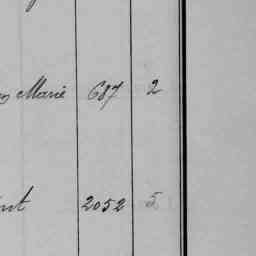 Marie 687 2
2052 5